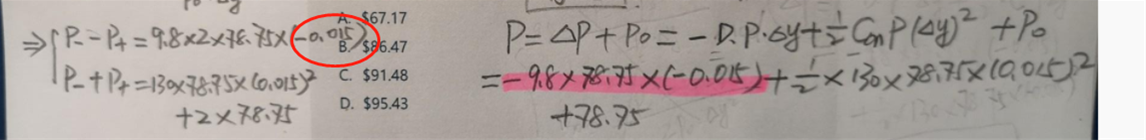 ⇒{P₋ - P₊ = 9.8×2×78.75×(-0.015)
P₋ + P₊ = 130×78.75×(0.015)²
+2×78.75
A. $67.17
B. $86.47
C. $91.48
D. $95.43
P = ΔP + P₀ = -D.P.Δy + ½ Con P (Δy)² + P₀
= -9.8×78.75×(-0.015) + ½×130×78.75×(0.015)²
+78.75